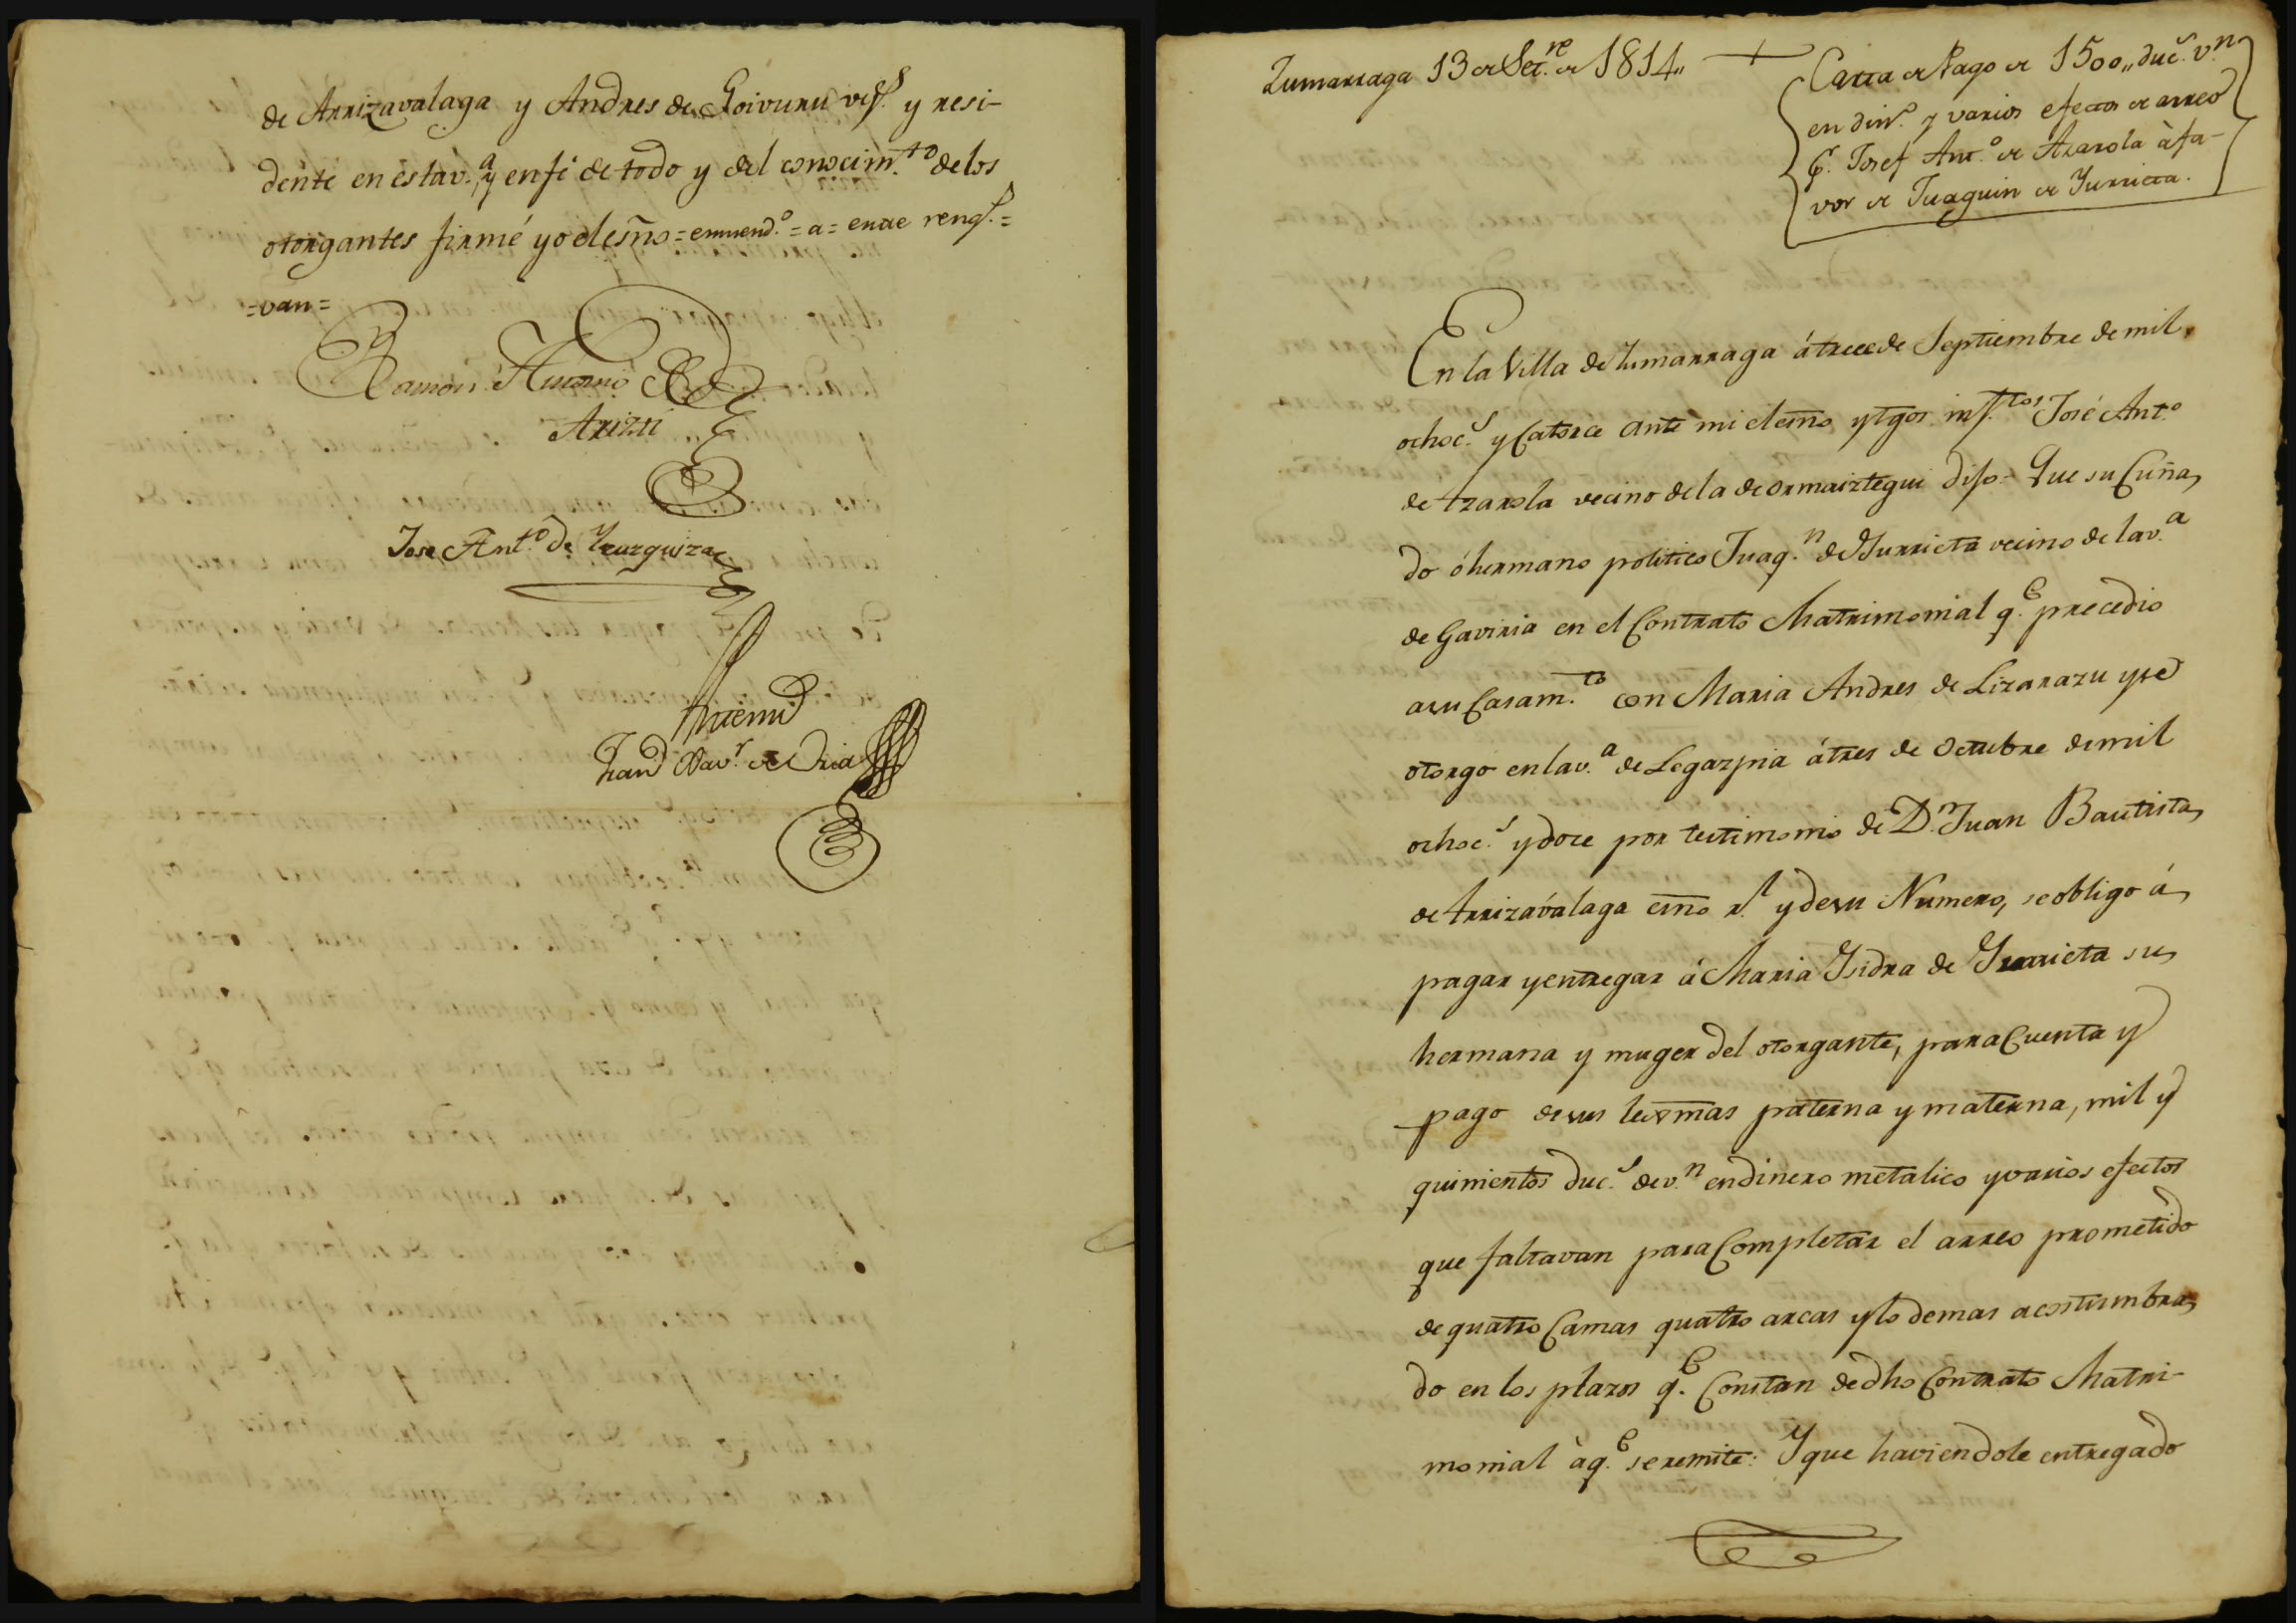 de Arrizavalaga y Andres de Goivuru vesˢ. y resi-
dente en esta v.ᵃ y en fé de todo y del conocim.ᵗᵒ de los
otorgantes firmé yo el esño = enmend.º = a = entre rengˢ. =
= van =
Ramon Antonio
Arizti
Jose Ant.º de Yzuzquiza
Ante mi
Fran.º Xav.ʳ de Oria
Zumarraga 13 de Set.ʳᵉ de 1814,,
Carta de Pago de 1500,, duc.ˢ v.ⁿ
en din.º y varios efectos de arreo
P.ʳ Josef Ant.º de Azarola à fa-
vor de Juaquin de Yurrieta.
En la Villa de Zumarraga á trece de Septiembre de mil
ochoc.ˢ y Catorce ante mi el esño y tgos inf.ᵗᵒˢ José Ant.º
de Azarola vecino de la de Ormaiztegui dijo = Que su Cuña
do ó hermano politico Juaq.ⁿ de Yurrieta vecino de la v.ᵃ
de Gaviria en el Contrato Matrimonial q.ᵉ precedio
a su Casam.ᵗᵒ con Maria Andres de Lizarazu y se
otorgo en la v.ᵃ de Legazpia á tres de Octubre de mil
ochoc.ˢ y doce por testimonio de D.ⁿ Juan Bautista
de Arrizávalaga esño r.ˡ y de su Numero, se obligo á
pagar y entregar á Maria Ysidra de Yurrieta su
hermana y muger del otorgante, para Cuenta y
pago de sus lexmas paterna y materna, mil y
quinientos duc.ˢ de v.ⁿ en dinero metalico y varios efectos
que faltavan para Completar el arreo prometido
de quatro Camas quatro arcas y lo demas acostumbra
do en los plazos q.ᵉ Constan de dho Contrato Matri-
monial à q.ᵉ se remite: Y que haviendole entregado